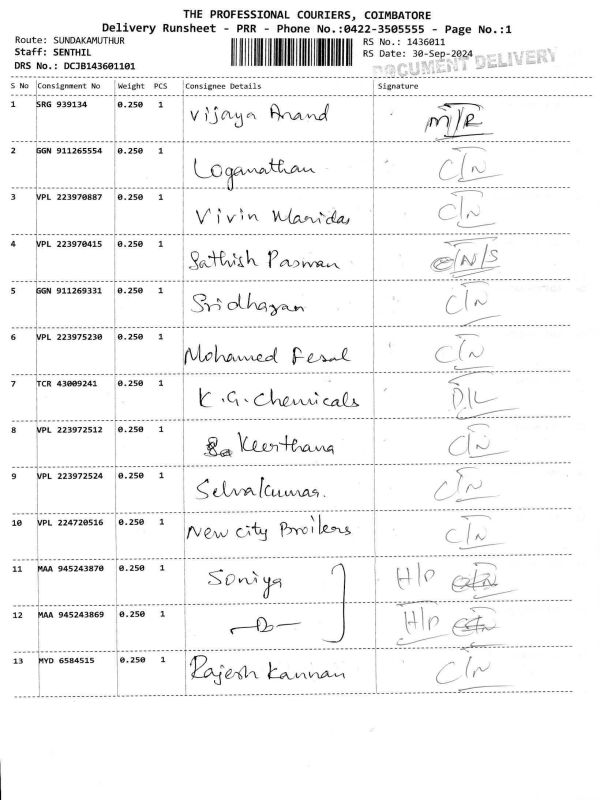 THE PROFESSIONAL COURIERS, COIMBATORE
Delivery Runsheet - PRR - Phone No.:0422-3505555 - Page No.:1
Route: SUNDAKAMUTHUR RS No.: 1436011
Staff: SENTHIL RS Date: 30-Sep-2024
DRS No.: DCJB143601101 DOCUMENT DELIVERY
S No Consignment No Weight PCS Consignee Details Signature
1 SRG 939134 0.250 1 Vijaya Anand M/R
2 GGN 911265554 0.250 1 Loganathan C/N
3 VPL 223970887 0.250 1 Vivin Maridas C/N
4 VPL 223970415 0.250 1 Sathish Pasman N/S
5 GGN 911269331 0.250 1 Sridharan C/N
6 VPL 223975230 0.250 1 Mohamed Fesal C/N
7 TCR 43009241 0.250 1 K.G. Chemicals D/L
8 VPL 223972512 0.250 1 Keerthana C/N
9 VPL 223972524 0.250 1 Selvakumar. C/N
10 VPL 224720516 0.250 1 New city Broilers C/N
11 MAA 945243870 0.250 1 Soniya H/D
12 MAA 945243869 0.250 1 —D— H/D
13 MYD 6584515 0.250 1 Rajesh Kannan C/N